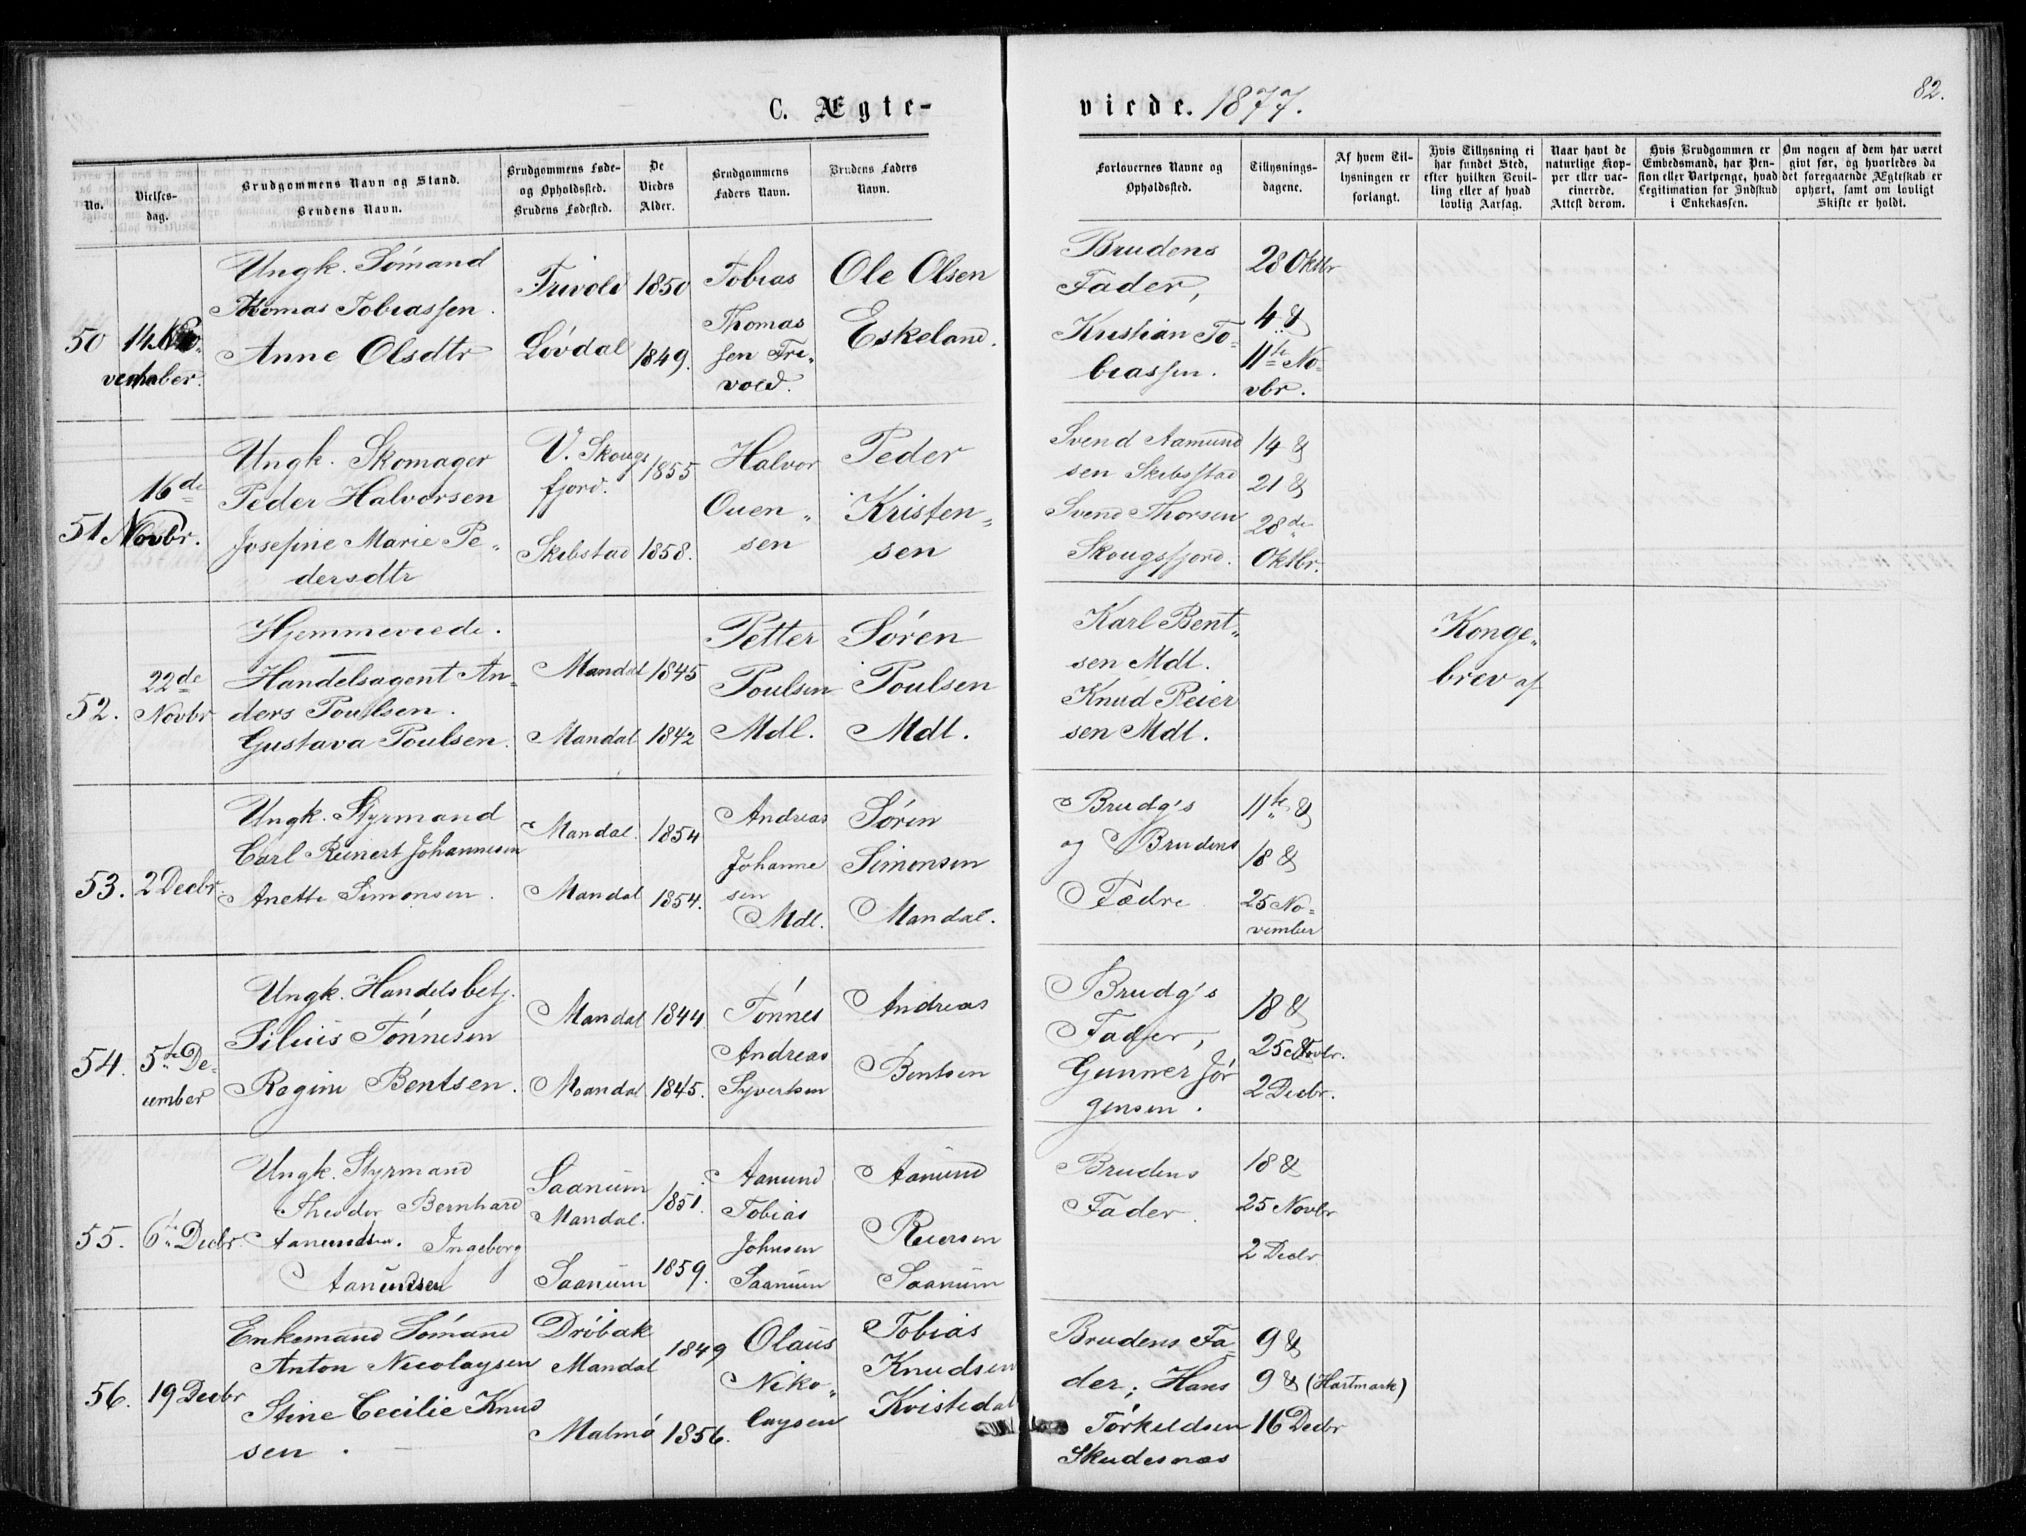 C. Ægte-
viede. 1877.
82.
No.
Vielses-
dag.
Brudgommens Navn og Stand.
Brudens Navn.
Brudgommens Føde-
og Opholdssted.
Brudens Fødested.
De
Viedes
Alder.
Brudgommens
Faders Navn.
Brudens Faders
Navn.
Forlovernes Navne og
Opholdssted.
Tillysnings-
dagene.
Af hvem Til-
lysningen er
forlangt.
Hvis Tillysning ei
har fundet Sted,
efter hvilken Bevil-
ling eller af hvad
lovlig Aarsag.
Naar havt de
naturlige Kop-
per eller vac-
cinerede.
Attest derom.
Hvis Brudgommen er
Embedsmand, har Pen-
sion eller Vartpenge, hvad
Legitimation for Indskud
i Enkekassen.
Om nogen af dem har været
givt før, og hvorledes da
det foregaaende Ægteskab er
ophørt, samt om lovligt
Skifte er holdt.
50
14 No-
vember.
Ungk. Sömand
Thomas Tobiassen.
Anne Olsdtr
Trivold
Lövdal
1850
1849.
Tobias
Thomas
sen Tri-
vold.
Ole Olsen
Eskeland.
Brudens
Fader,
Kristian To-
biassen.
28 Oktbr
4 &
11te No-
vbr.
51
16de
Novbr.
Ungk. Skomager
Peder Halvorsen
Josefine Marie Pe-
dersdtr
V. Skougs
fjord.
Skibstad
1855
1858.
Halvor
Ouen-
sen
Peder
Kristen-
sen
Svend Aamund
sen Skibsstad
Svend Thorsen
Skougsfjord.
14 &
21 &
28de
Oktbr.
52.
22de
Novbr
Hjemmeviede.
Handelsagent An-
ders Poulsen.
Gustava Poulsen.
Mandal
Mandal
1845
1842
Petter
Poulsen
Mdl.
Sören
Poulsen
Mdl.
Karl Bent-
sen Mdl.
Knud Reier
sen Mdl.
Konge-
brev af
53.
2 Decbr.
Ungk. Styrmand
Carl Reinert Johannesen
Anette Simonsen.
Mandal.
Mandal
1854
1854.
Andreas
Johanne
sen
Mdl.
Sören
Simonsen
Mandal.
Brudg's
og Brudens
Fædre
11te &
18 &
25 No-
vember
54.
5te De-
cember
Ungk. Handelsbetj.
Silius Tönnesen
Regine Bentsen.
Mandal
Mandal
1844
1845.
Tönnes
Andreas
Syvertsen
Andreas
Bentsen
Brudg's
Fader,
Gunner Jör
gensen.
18 &
25 Novbr.
2 Decbr.
55.
6te Decbr.
Ungk. Styrmand
Theodor Bernhard
Aanundsen. Ingeborg
Aanundsen
Saanum
Mandal.
Saanum
1851.
1859.
Aanund
Tobias
Johnsen
Saanum
Aanund
Reiersen
Saanum
Brudens
Fader.
18 &
25 Novbr
2 Decbr
56.
19 Decbr
Enkemand Sömand
Anton Nicolaysen
Stine Cecilie Knud
sen.
Dröbak
Mandal
Malmö
1849
1856.
Olaus
Niko-
laysen
Tobias
Knudsen
Kvistedal
Brudens Fa-
der, Hans
Törkeldsen
Skudesnæs
9 &
9 & (Hartmark)
16 Decbr